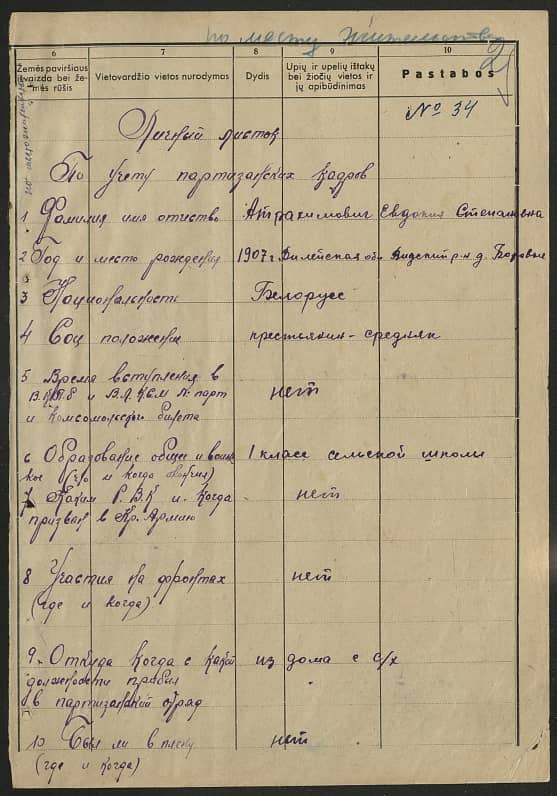 по месту жительства
6
7
8
9
10
Žemės paviršiaus
išvaizda bei že-
mės rūšis
Vietovardžio vietos nurodymas
Dydis
Upių ir upelių ištakų
bei žiočių vietos ir
jų apibūdinimas
Pastabos
№ 34
Личный листок
По учету партизанских кадров
1 Фамилия имя отчество Атрахимович Евдокия Степановна
2 Год и место рождения 1907 г Вилейская обл Видзский р-н д.
3 Национальность Белорусс
4 Соц положение крестьянин - средняк
5 Время вступления в
В.К.П.б и В.Л.К.С.М № парт
и комсомольский билета
нет
6 Образование общее и воен
ное (что и когда окончил)
1 класс сельской школы
7 Каким Р.В.К и когда
призван в Кр. Армию
нет
8 Участия на фронтах
(где и когда)
нет
9. Откуда когда с какой
должности прибыл
в партизанский отряд
из дома с с/х
10 Был ли в плену
(где и когда)
нет